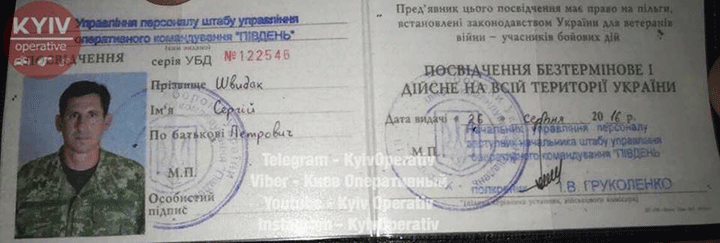 KYIV
operative
Управління персоналу штабу управління
оперативного командування "ПІВДЕНЬ"
ПОСВІДЧЕННЯ серія УБД №122546
Прізвище Швидак
Ім'я Сергій
По батькові Петрович
М.П.
Особистий
підпис
Пред'явник цього посвідчення має право на пільги,
встановлені законодавством України для ветеранів
війни – учасників бойових дій
ПОСВІДЧЕННЯ БЕЗТЕРМІНОВЕ І
ДІЙСНЕ НА ВСІЙ ТЕРИТОРІЇ УКРАЇНИ
Дата видачі « 26 Серпня 2016 р.
Начальник управління персоналу
заступник начальника штабу управління
М.П. оперативного командування "ПІВДЕНЬ"
полковник І.В. ГРУКОЛЕНКО
Telegram - KyivOperativ
Viber - Киев Оперативный
Youtube - Kyiv Operativ
Instagram - KyivOperativ